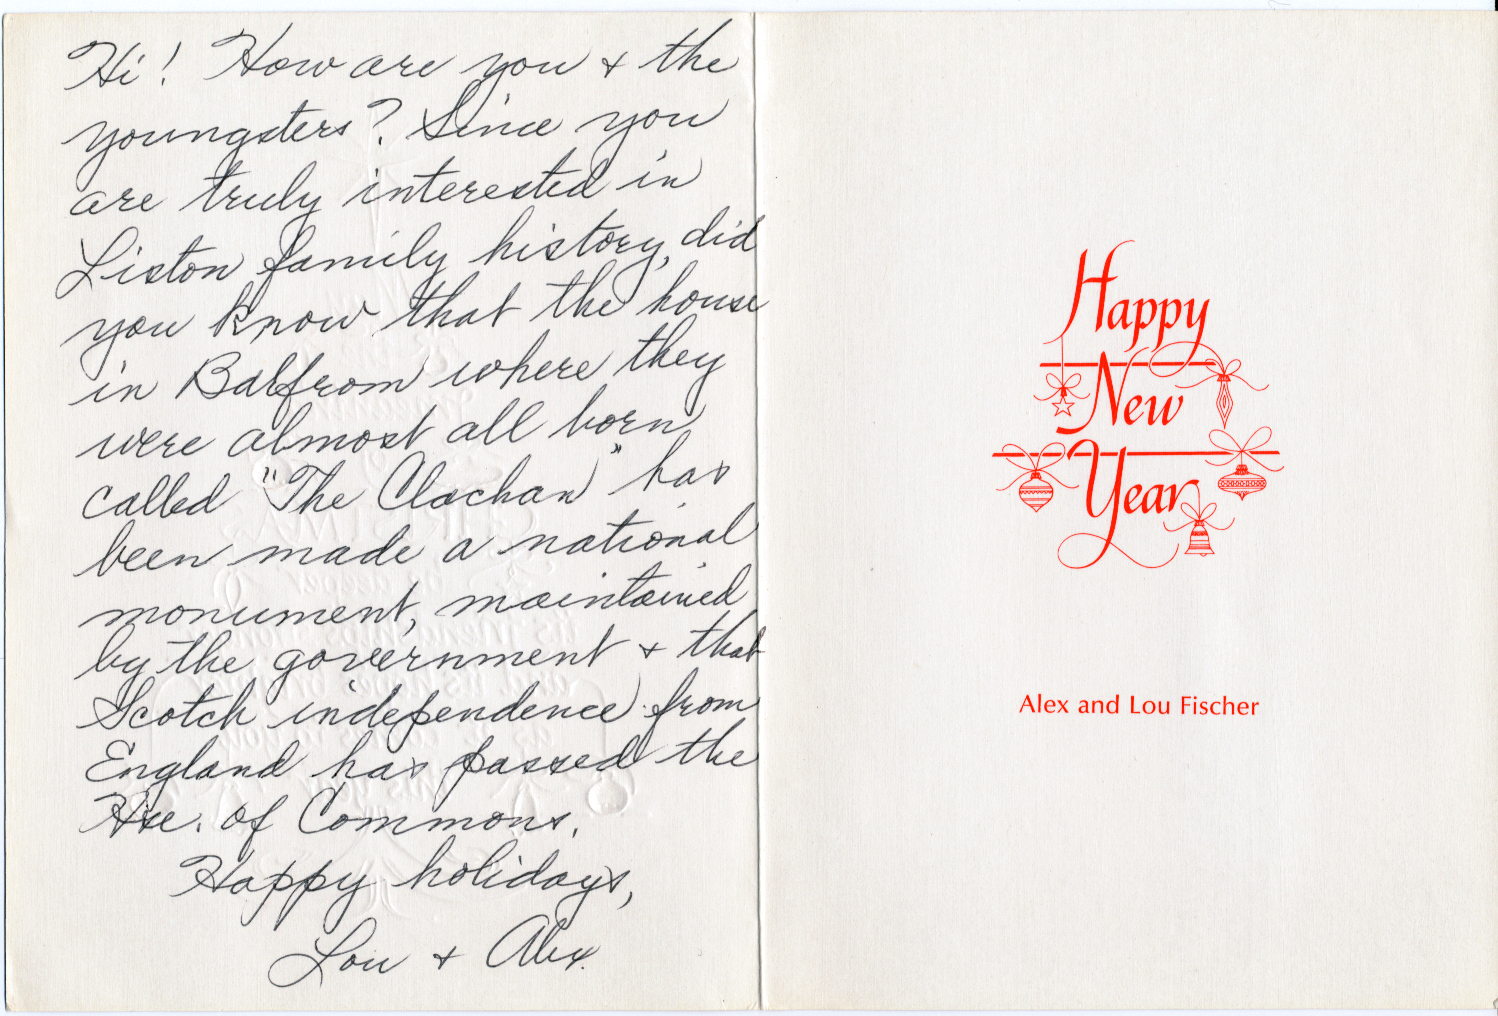 Hi! How are you & the
youngsters? Since you
are truly interested in
Liston family history, did
you know that the house
in Balfrom where they
were almost all born
called "The Clachan" has
been made a national
monument, maintained
by the government & that
Scotch independence from
England has passed the
Hse. of Commons.
Happy holidays,
Lou & Alex.
Happy
New
Year
Alex and Lou Fischer